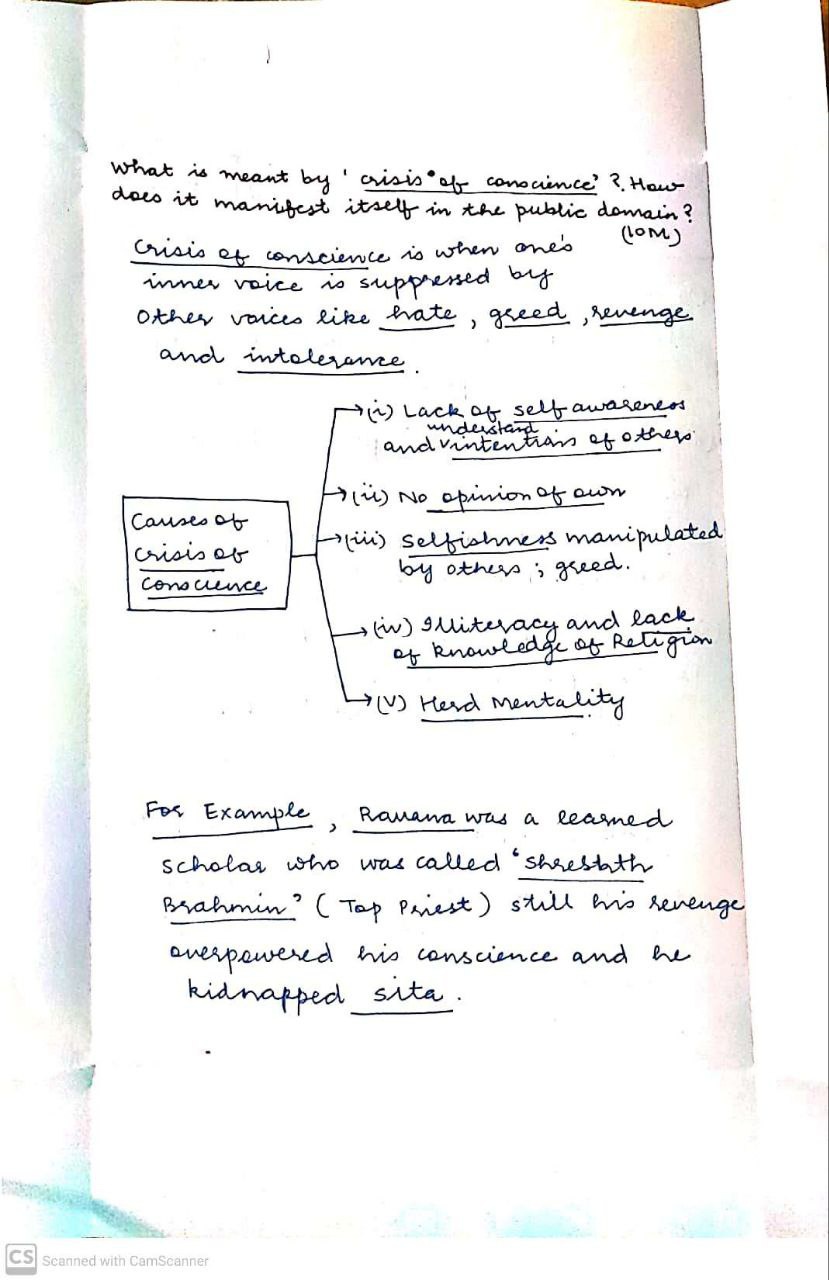 What is meant by 'crisis of conscience'? How
does it manifest itself in the public domain?
(10M)
Crisis of conscience is when one's
inner voice is suppressed by
other voices like hate, greed, revenge
and intolerance.
(i) Lack of self awareness
understand
and intentions of others
(ii) No opinion of own
Causes of
crisis of
conscience
(iii) Selfishness manipulated
by others; greed.
(iv) Illiteracy and lack
of knowledge of Religion
(v) Herd Mentality
For Example, Ravana was a learned
scholar who was called 'Shrestath
Brahmin' (Top Priest) still his revenge
overpowered his conscience and he
kidnapped sita.
CS Scanned with CamScanner